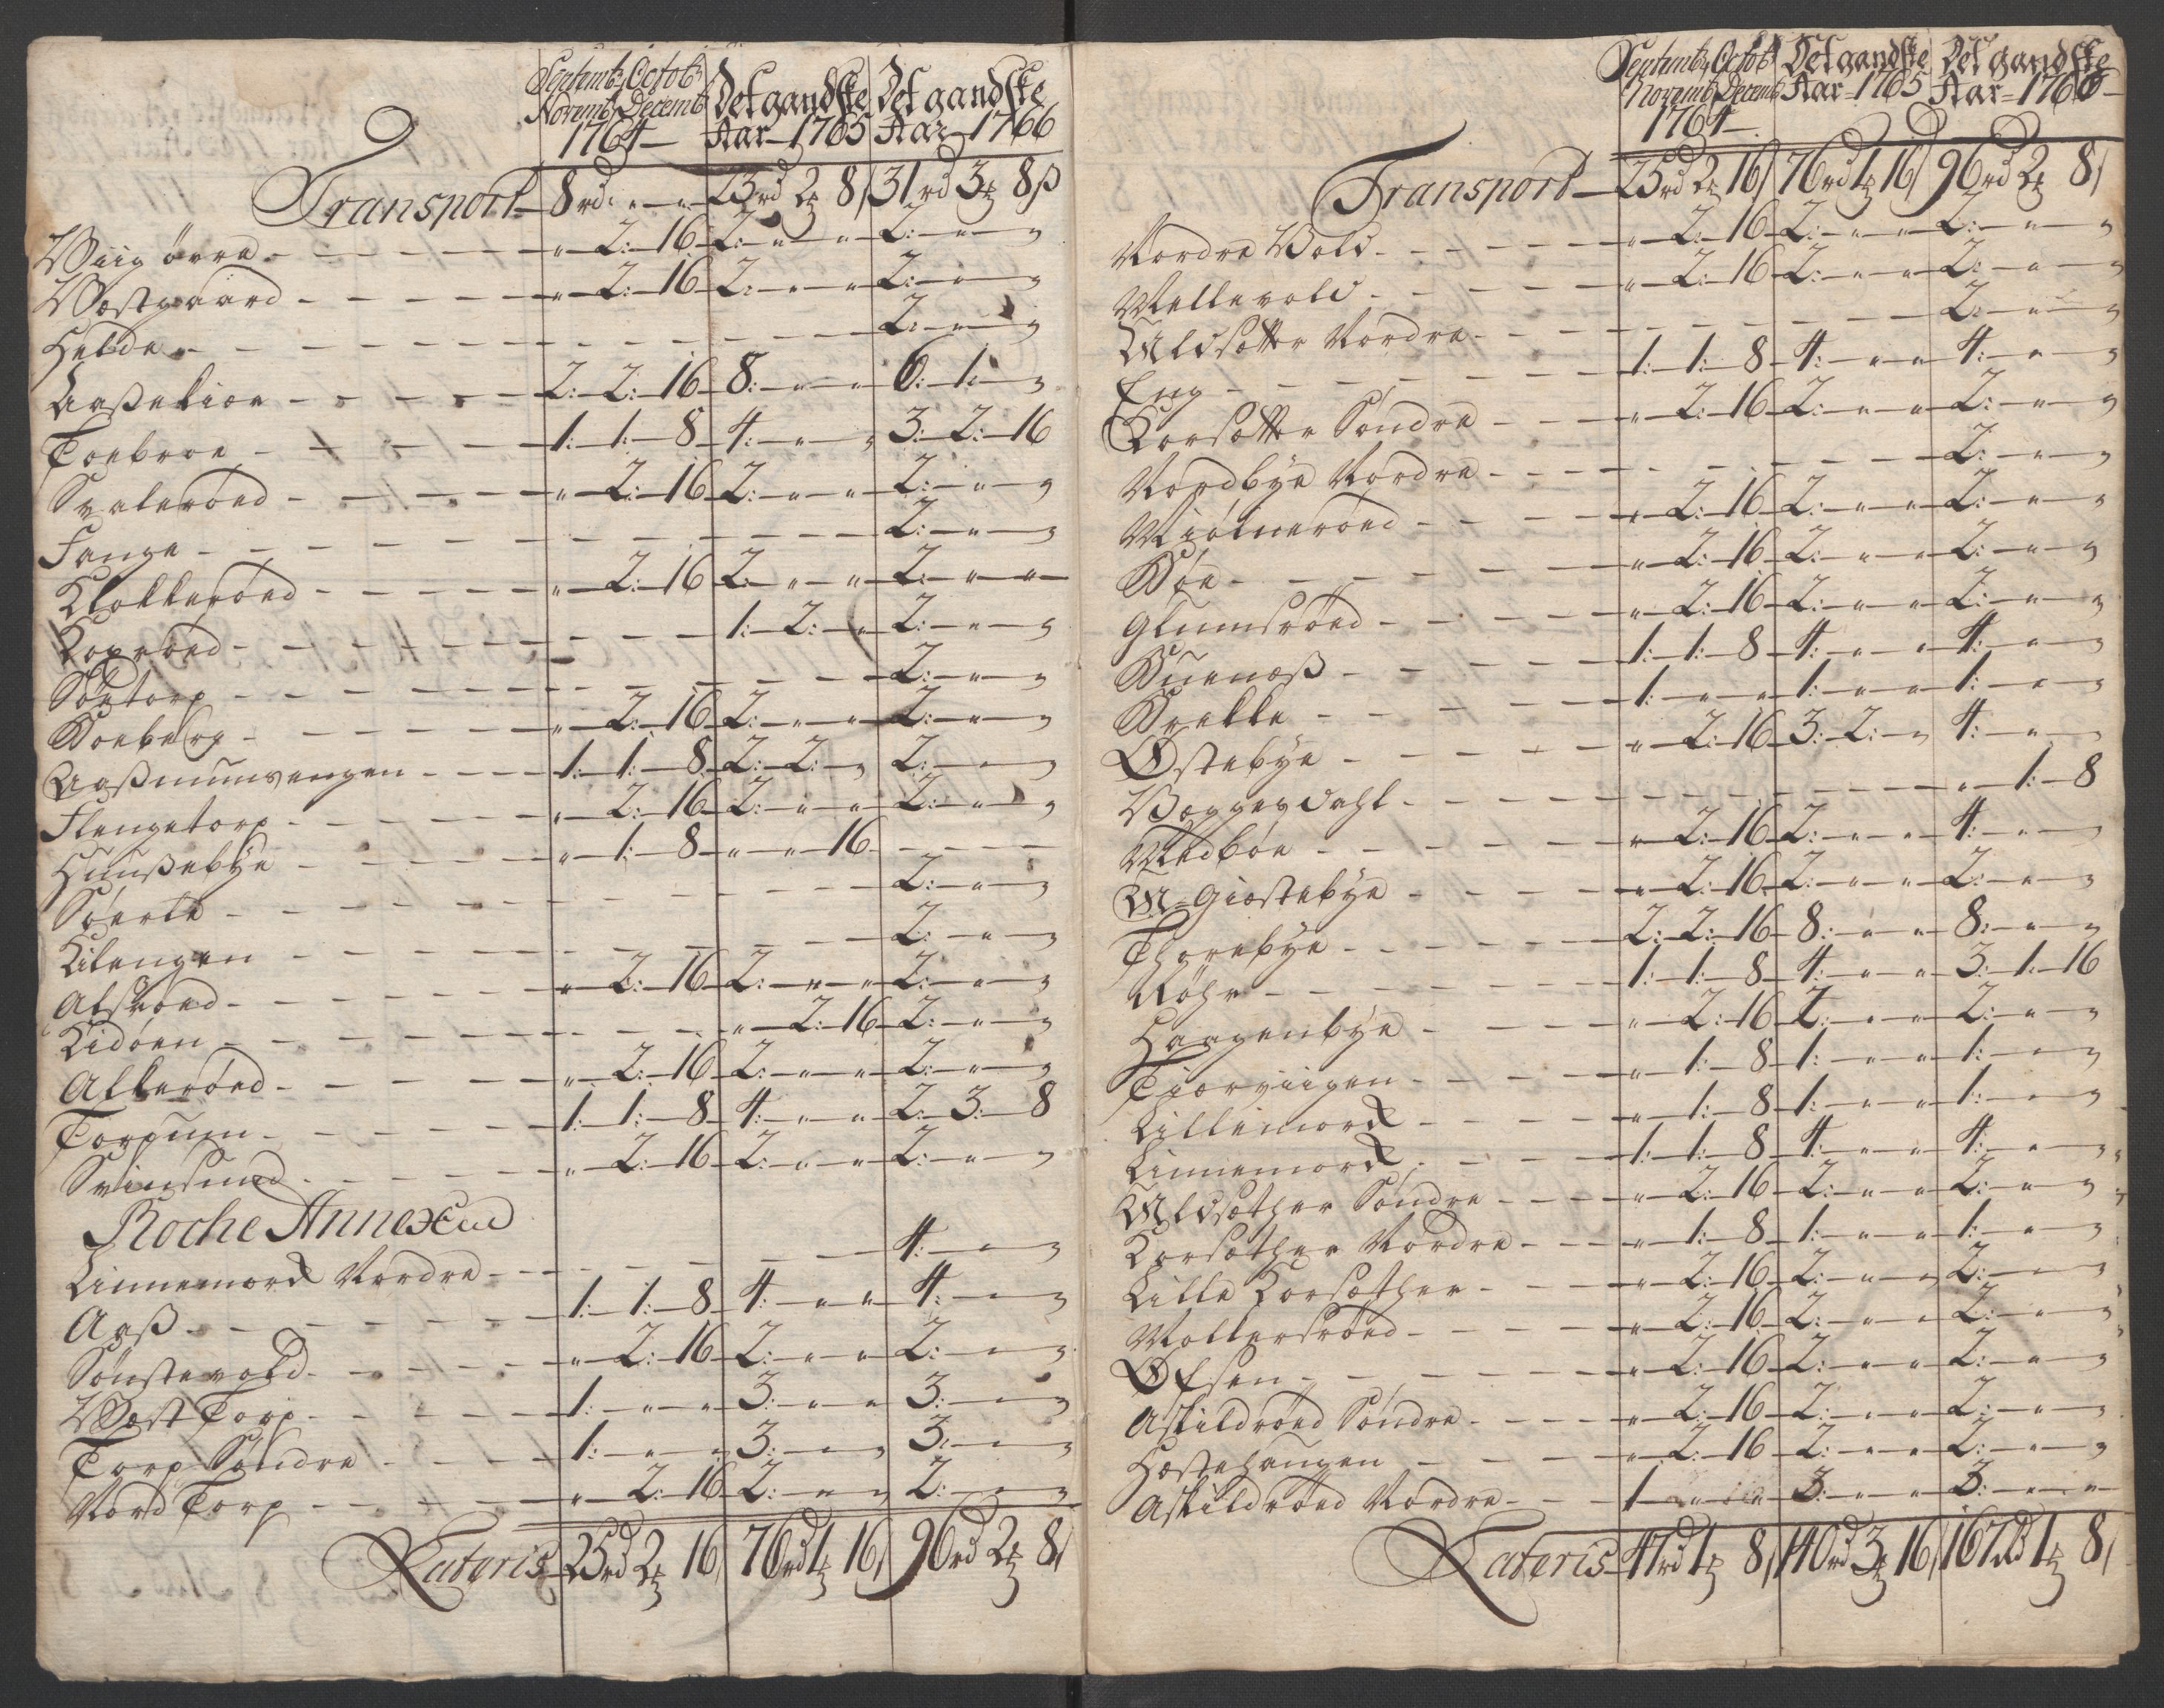 Septemb: Octob: Novemb: Decemb: 1764 — Det gandske Aar 1765 Det gandske Aar 1766
Transport 8 rd " — " 23 rd 2 8 31 rd 3 8 ß
Wiig övre " 2: 16 2: " " 2: " "
Westgaard " 2: 16 2: " " 2: " "
Helde 2: " "
Aaßekien 2: 2: 16 8: " " 6: 1: "
Toebroe 1: 1: 8 4: " " 3: 2: 16
Svaleröed " 2: 16 2: " " 2: " "
Fange 2: " "
Klokkeröed " 2: 16 2: " " 2: " "
Kopröed 1: 2: " 2: " "
Söetorp 2: " "
Boeberg " 2: 16 2: " " 2: " "
Aaßmunsvengen 1: 1: 8 2: 2: " 2: " "
Flengetorp " 2: 16 2: " " 2: " "
Hunßebye " 1: 8 " " 16
Söerli 2: " "
Kilengen 2: " "
Alsröed " 2: 16 2: " " 2: " "
Kidöen " 2: 16 2: " "
Alleröed " 2: 16 2: " " 2: " "
Torpum 1: 1: 8 4: " " 2: 3: 8
Svinsund " 2: 16 2: " " 2: " "
Roche Annexed
Linnemord Nordre 4: " "
Aaß 1: 1: 8 4: " " 4: " "
Sönstevold " 2: 16 2: " " 2: " "
West Torp 1: " " 3: " " 3: " "
Torp Söndre 1: " " 3: " " 3: " "
Nord Torp " 2: 16 2: " " 2: " "
Lateris 25 rd 2 16 76 rd 1 16 96 rd 2 8
Septemb: Octob: Novemb: Decemb: 1764 — Det gandske Aar 1765 Det gandske Aar 1766
Transport 25 rd 2 16 76 rd 1 16 96 rd 2 8
Nordre Wold " 2: 16 2: " " 2: " "
Mellevold " 2: 16 2: " " 2: " "
Nordre 2: " "
Eng 1: 1: 8 4: " " 4: " "
Korsætter Söndre " 2: 16 2: " " 2: " "
Nordbye Nordre 2: " "
Miölneröed " 2: 16 2: " " 2: " "
Böe " 2: 16 2: " " 2: " "
Glumsröed " 2: 16 2: " " 2: " "
Buenæß 1: 1: 8 4: " " 4: " "
Brekke 1: " " 1: " " 1: " "
Østebye " 2: 16 3: 2: " 4: " "
" 1: 8
Medböe " 2: 16 2: " " 4: " "
M: Giöstebye " 2: 16 2: " " 2: " "
Thorebye 2: 2: 16 8: " " 8: " "
Röhr 1: 1: 8 4: " " 3: 1: 16
Haagenbye " 2: 16 2: " " 2: " "
Tiorviigen " 1: 8 1: " " 1: " "
Lillemord " 1: 8 1: " " 1: " "
Linnemord 1: 1: 8 4: " " 4: " "
Söndre " 2: 16 2: " " 2: " "
Korsæther Nordre " 1: 8 1: " " 1: " "
Lille Korsæther " 2: 16 2: " " 2: " "
Holkersröed " 2: 16 2: " " 2: " "
Öfsen " 2: 16 2: " " 2: " "
Askildröed Söndre " 2: 16 2: " " 2: " "
Hæstehaugen " 2: 16 2: " " 2: " "
Askildröed Nordre 1 " " 3: " " 3: " "
Lateris 47 rd 1 8 140 rd 3 16 167 rd 1 8